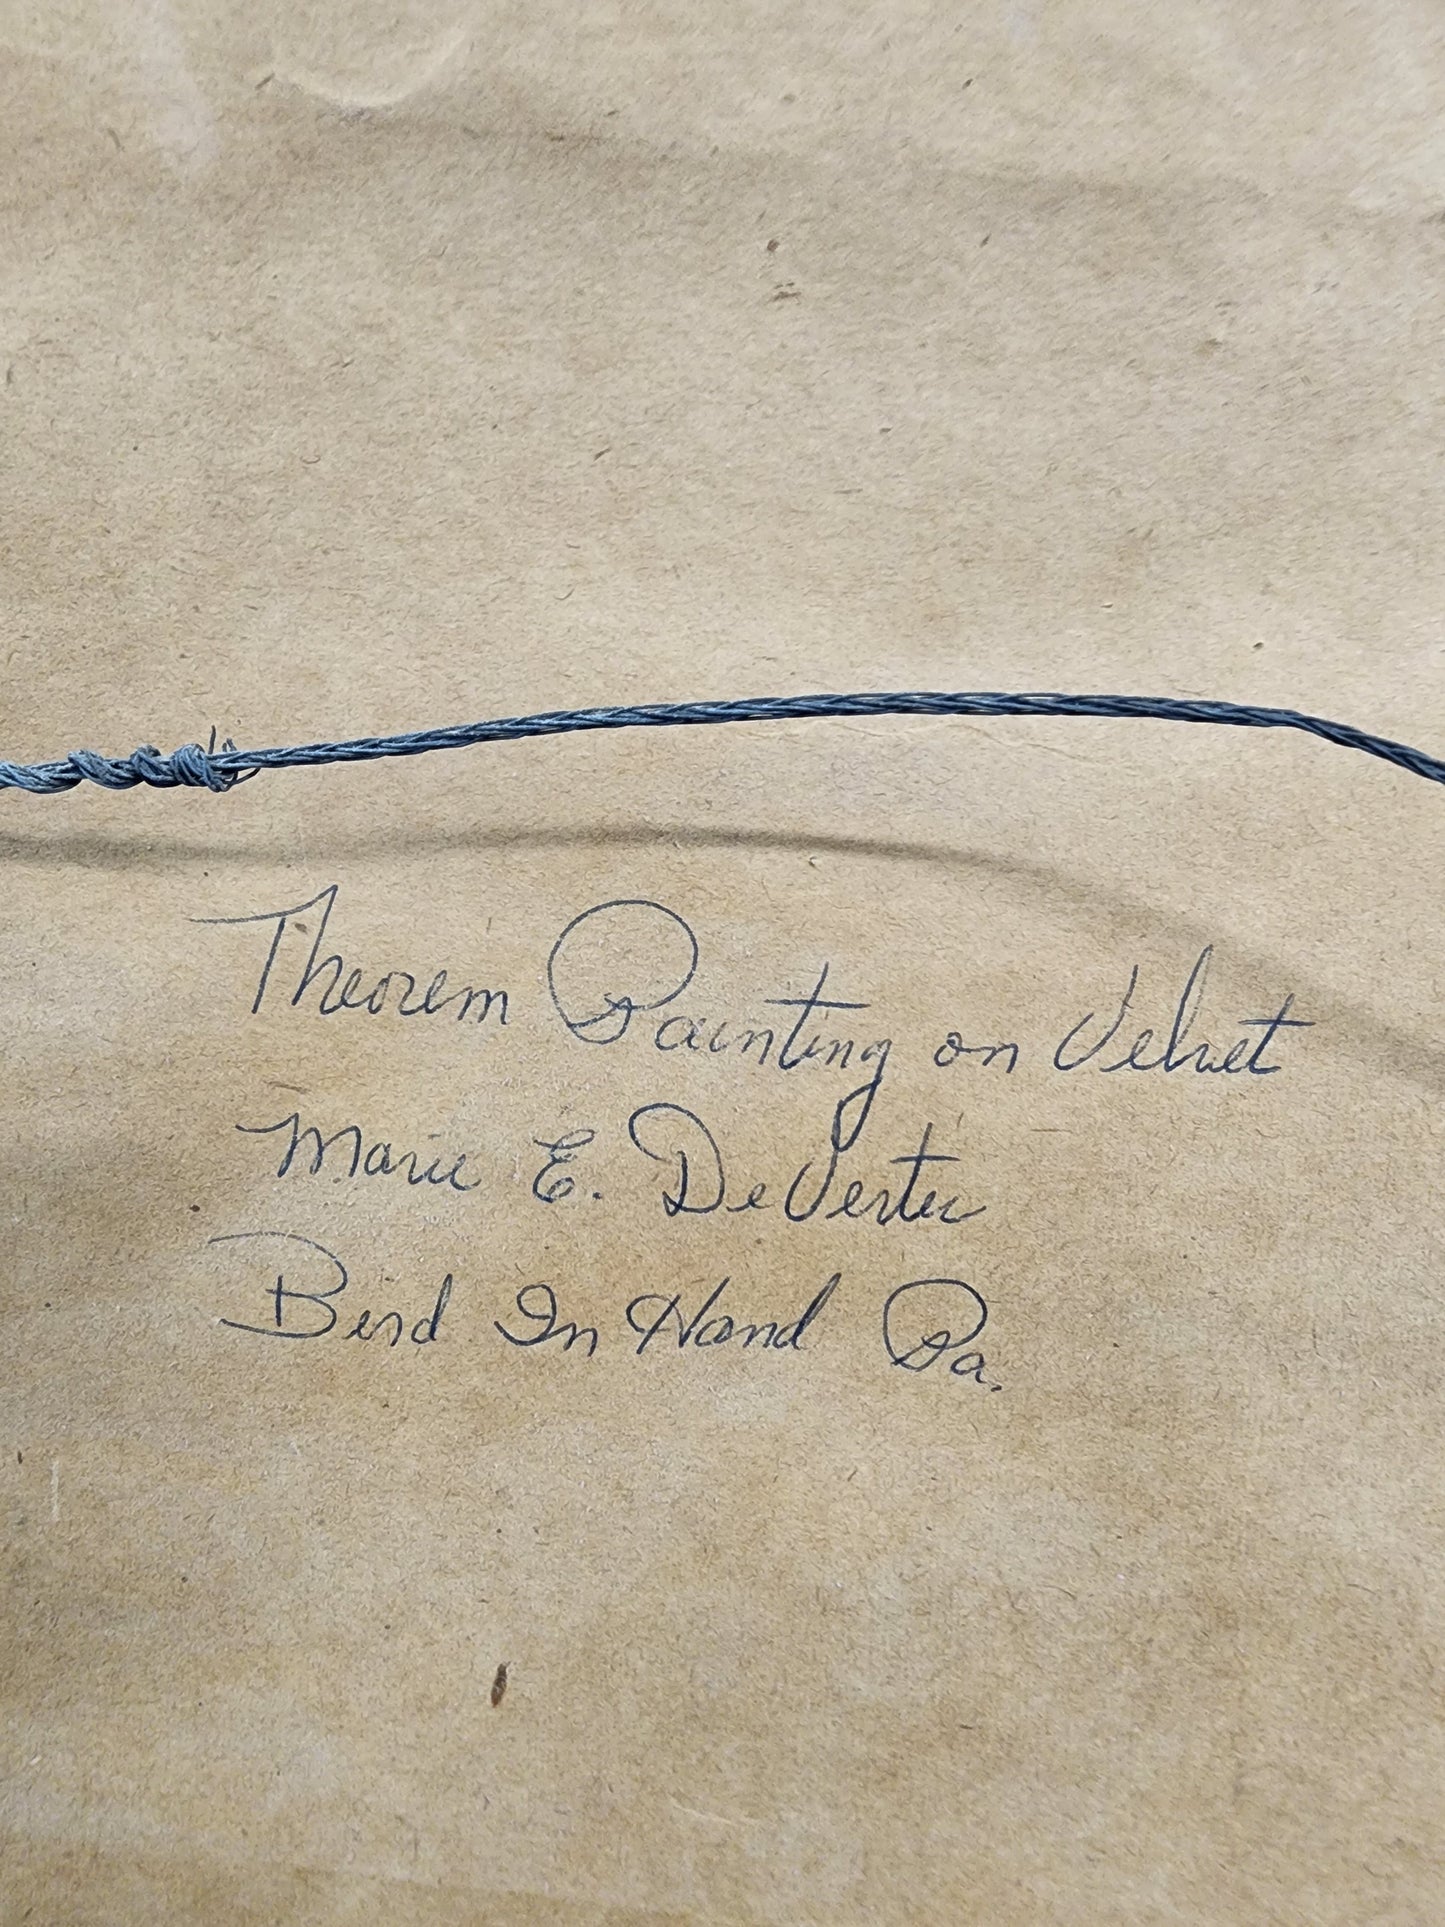 Theorem Painting on Velvet
Marie E. DeVerter
Bird In Hand Pa.